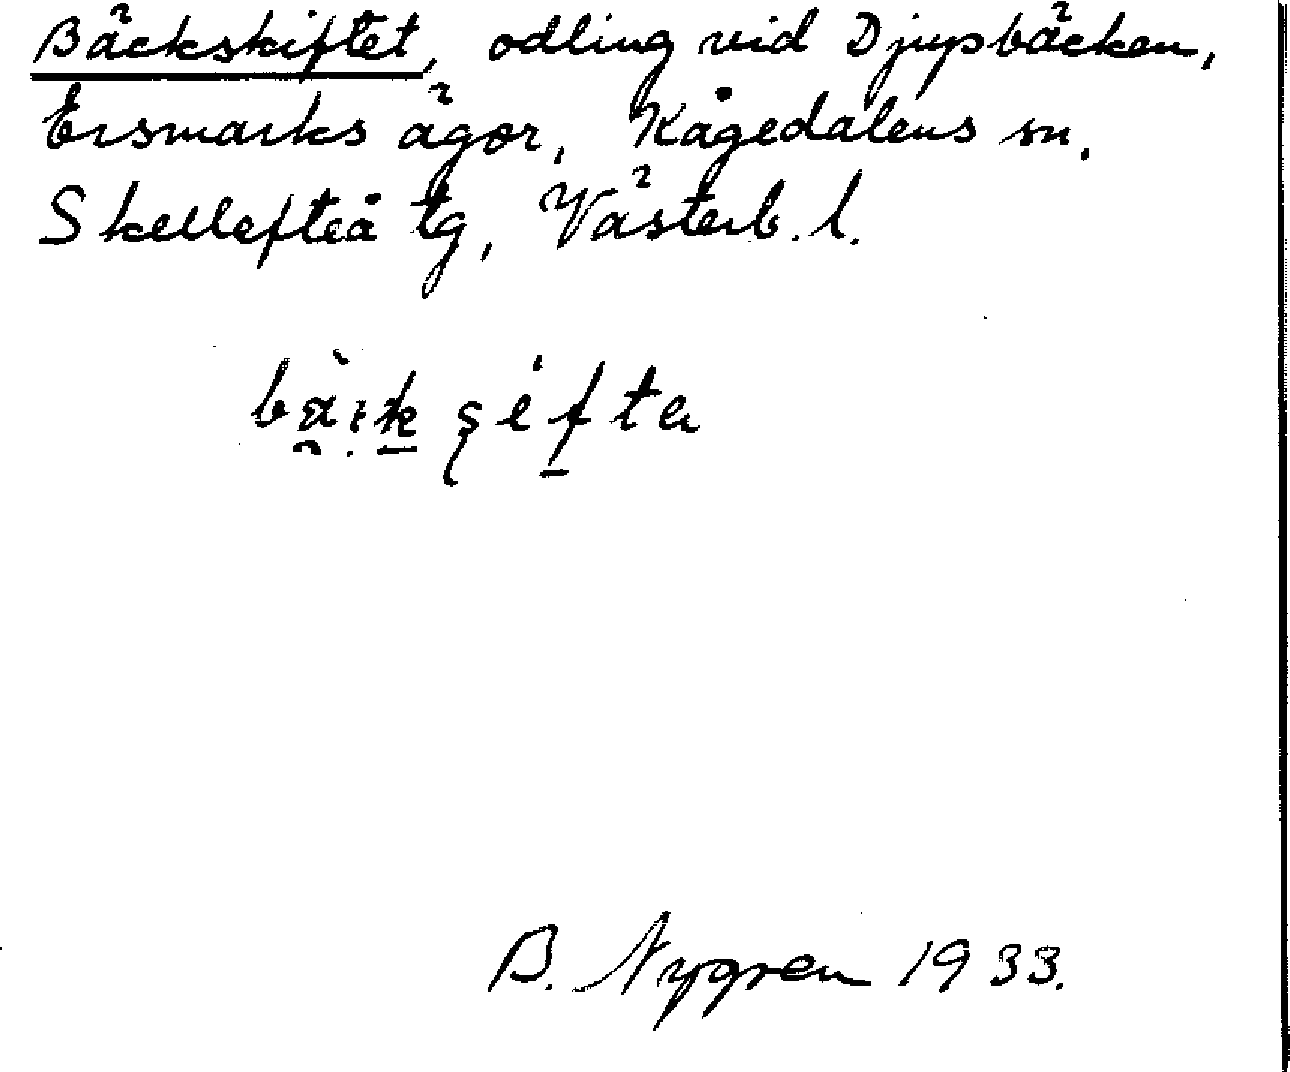 Bäckskiftet, odling vid Djupsbäcken,
Ersmarks ägor, Kågedalens sn.
Skellefteå tg, Västerb. l.
B. Nygren 1933.